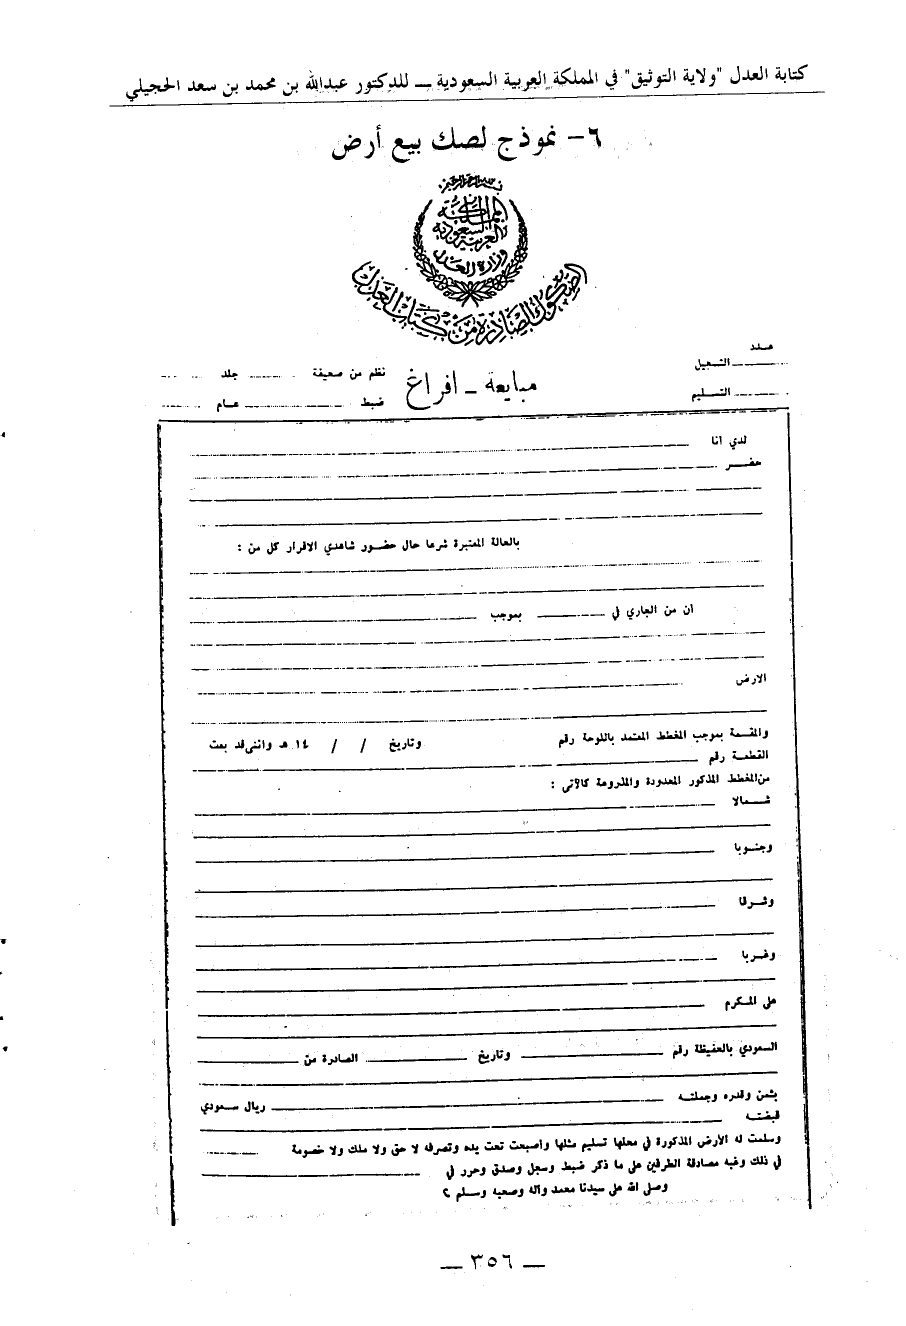 كتابة العدل "ولاية التوثيق" في المملكة العربية السعودية ــ للدكتور عبدالله بن محمد بن سعد الحجيلي
٦- نموذج لصك بيع أرض
بسم الله الرحمن الرحيم
المملكة
العربية السعودية
وزارة العدل
الصكوك الصادرة من كتاب العدل
عدد
التسجيل
التسليم
مبايعة ـ افراغ
نظم من صحيفة جلد
ضبط عام
لدي انا
حضر
بالحالة المعتبرة شرعا حال حضور شاهدي الاقرار كل من :
ان من الجاري في بموجب
الارض
والمقسمة بموجب المخطط المعتمد باللوحة رقم وتاريخ / / ١٤ هـ وانني قد بعت
القطعة رقم
من المخطط المذكور المحدودة والمذروعة كالآتى :
شمالا
وجنوبا
وشرقا
وغربا
على المكرم
السعودي بالحفيظة رقم وتاريخ الصادرة من
بثمن وقدره وجملته ريال سعودي
قبضته
وسلمت له الارض المذكورة في محلها تسليم مثلها وأصبحت تحت يده وتصرفه لا حق ولا ملك ولا خصومة
في ذلك وغبه مصادقة الطرفين على ما ذكر ضبط وسجل وصدق وحرر في
وصلى الله على سيدنا محمد وآله وصحبه وسلم ؟
ــ ٣٥٦ ــ